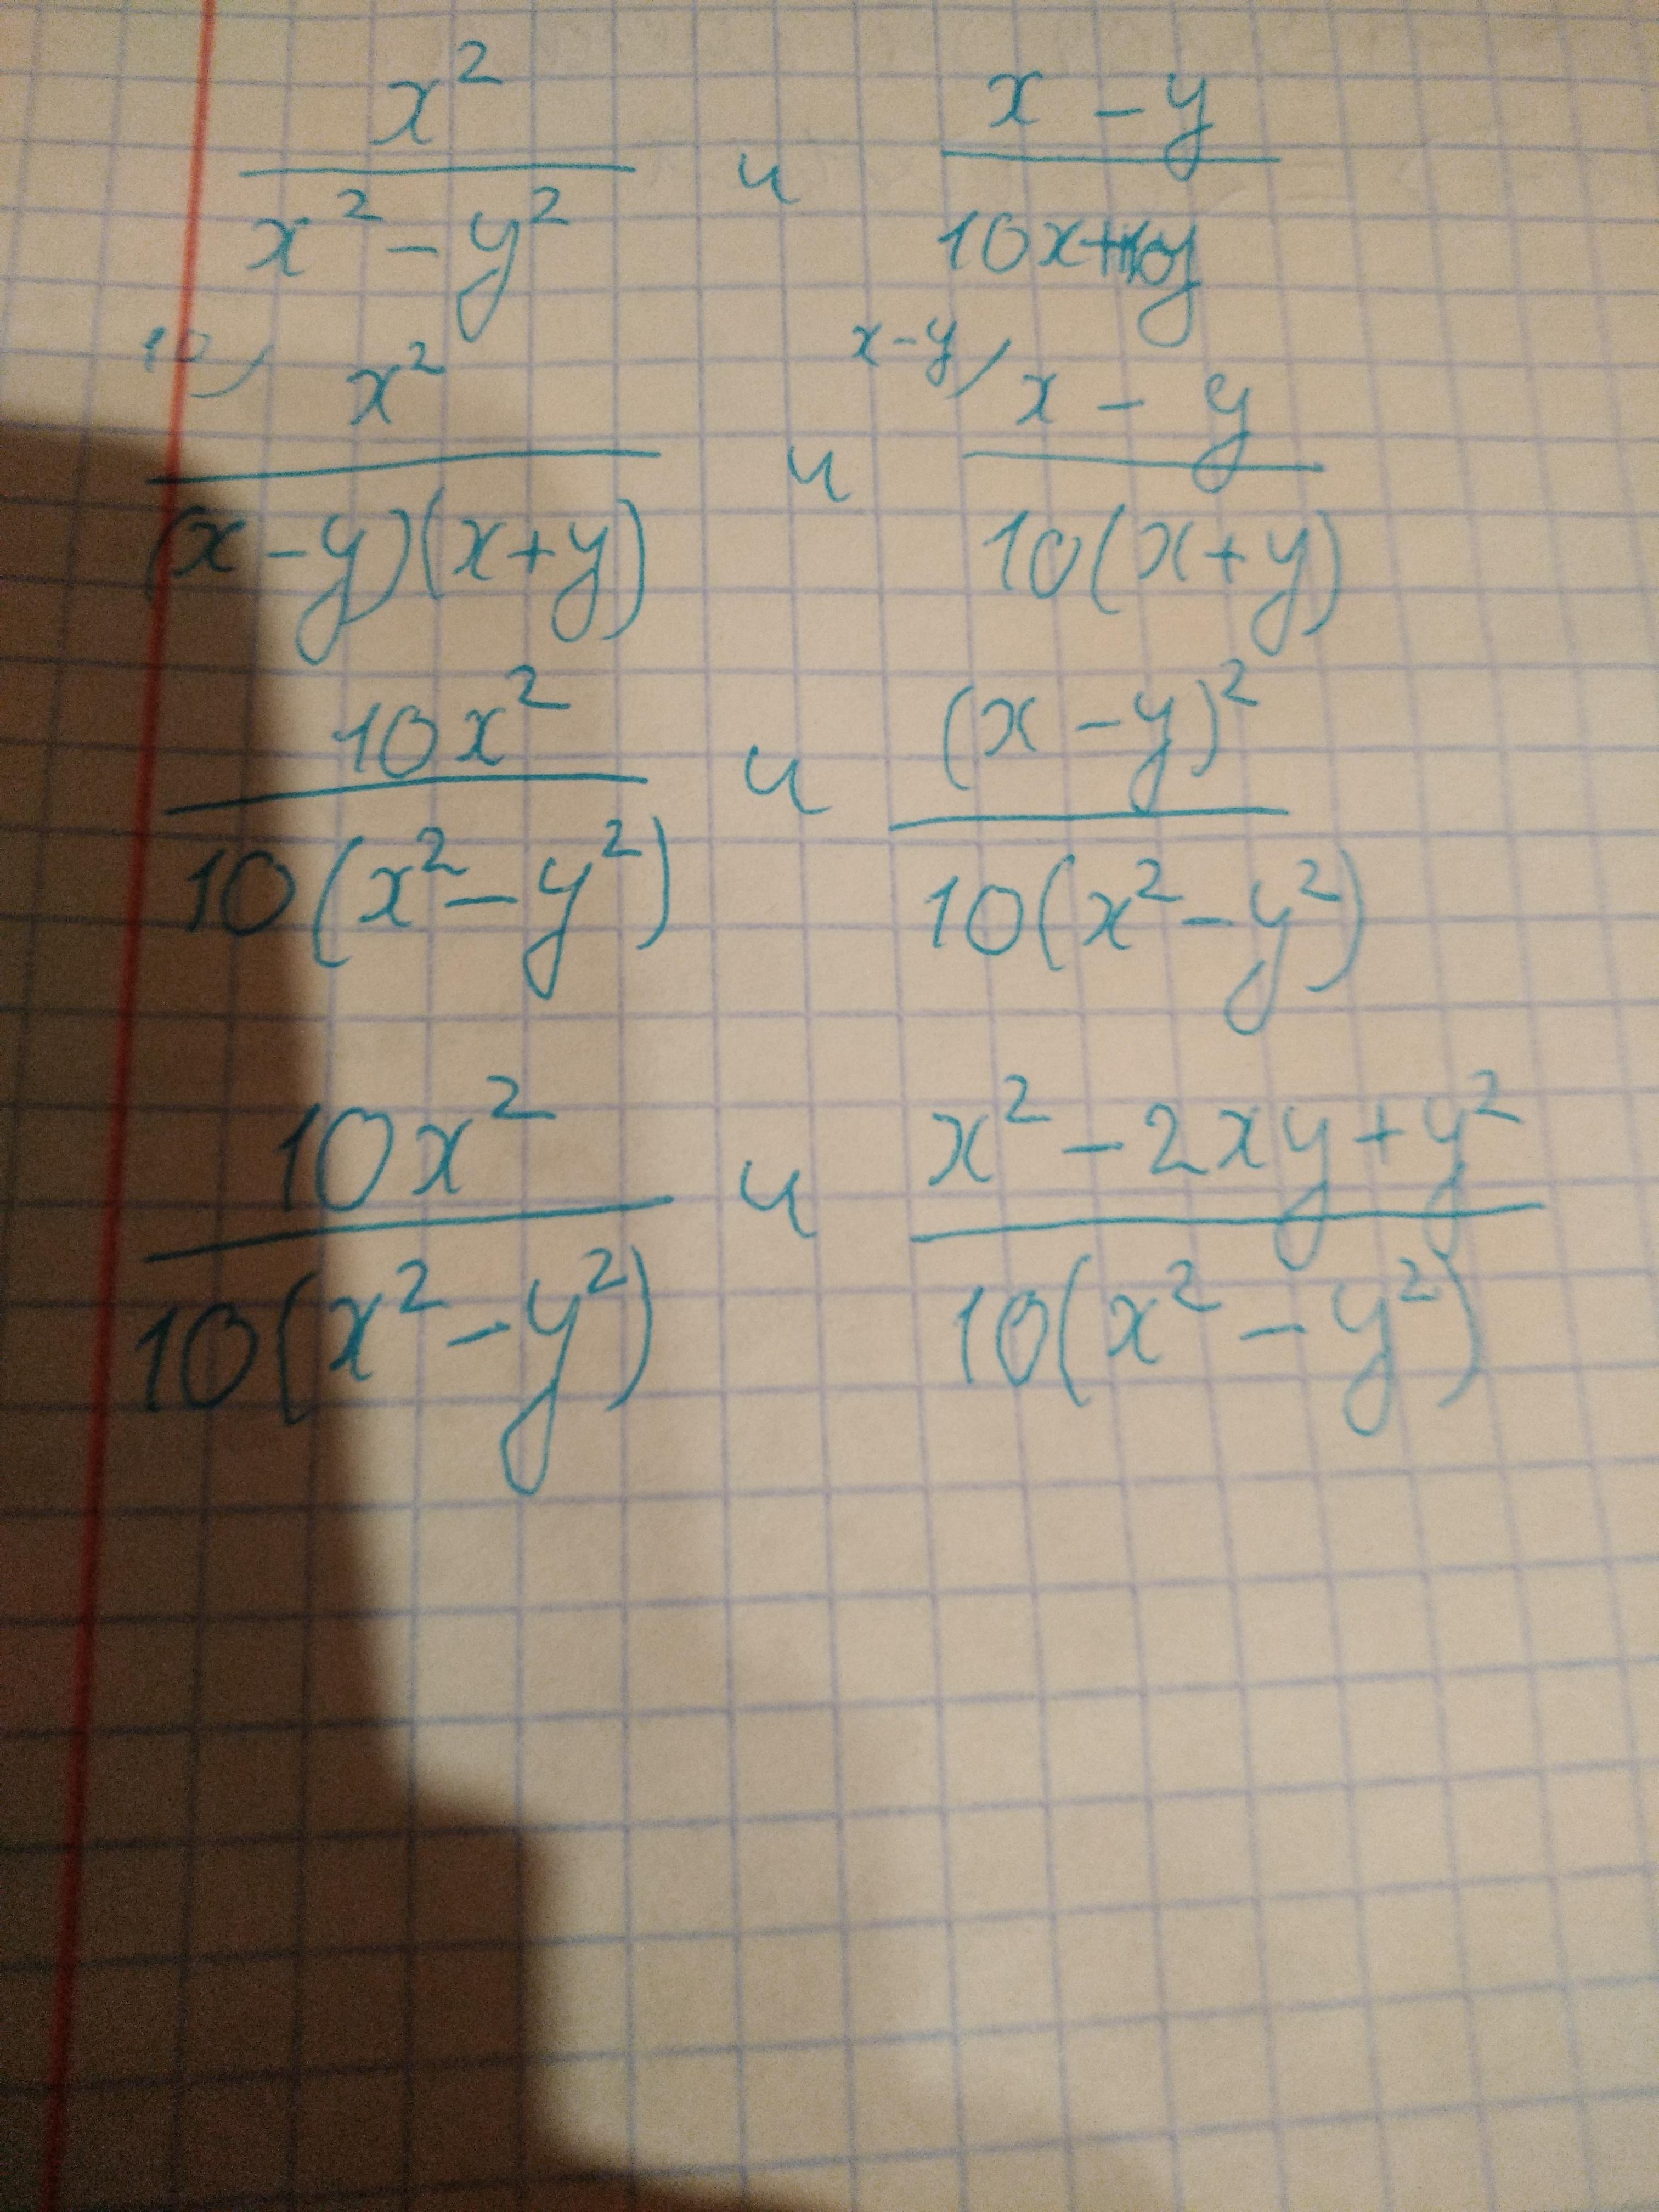 x² / x² - y² и x - y / 10x+10y
10/ x² / (x-y)(x+y) и x-y/ x - y / 10(x+y)
10x² / 10(x²-y²) и (x-y)² / 10(x²-y²)
10x² / 10(x²-y²) и x²-2xy+y² / 10(x²-y²)